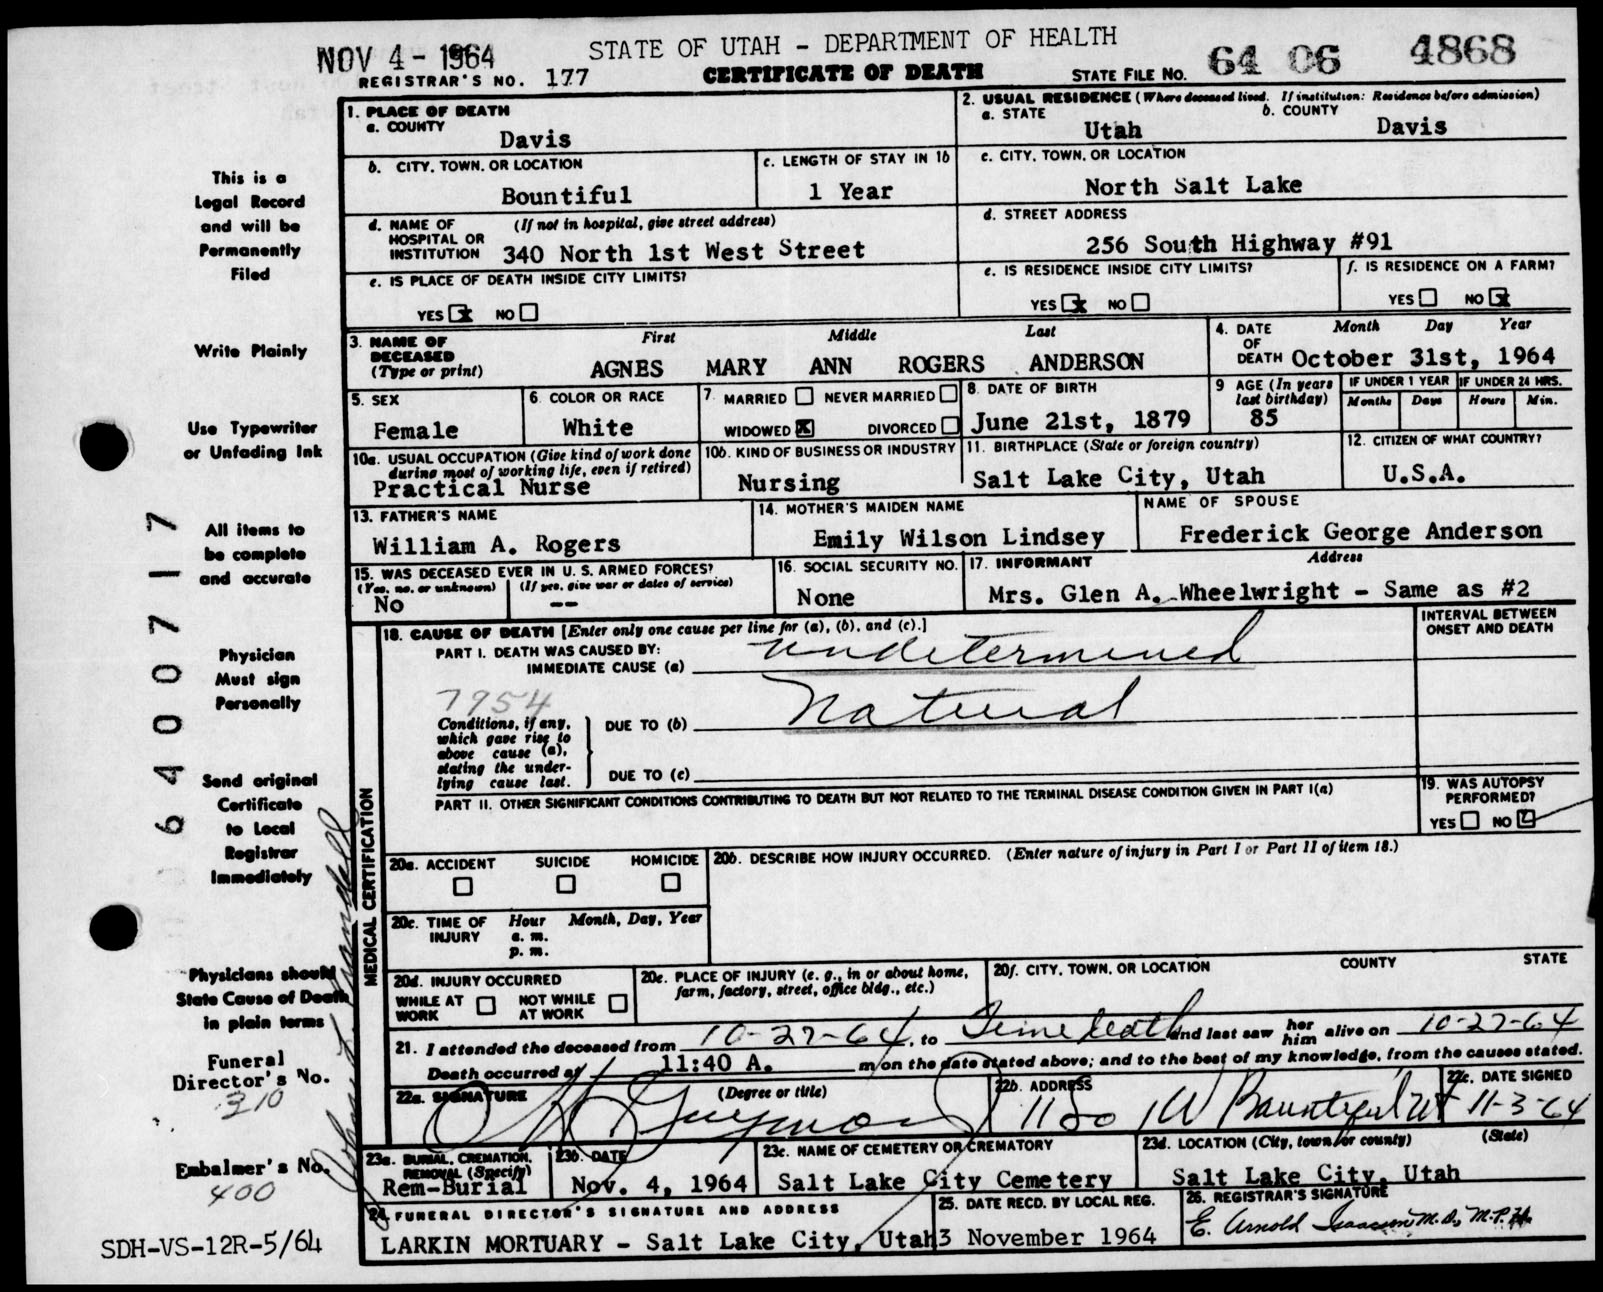 NOV 4 - 1964
STATE OF UTAH - DEPARTMENT OF HEALTH
REGISTRAR'S NO. 177
CERTIFICATE OF DEATH
STATE FILE NO. 64 06 4868
This is a
Legal Record
and will be
Permanently
Filed
Write Plainly
Use Typewriter
or Unfading Ink
All items to
be complete
and accurate
Physician
Must sign
Personally
Send original
Certificate
to Local
Registrar
Immediately
Physicians should
State Cause of Death
in plain terms
Funeral
Director's No.
310
Embalmer's No.
400
SDH-VS-12R-5/64
6400717
1. PLACE OF DEATH
a. COUNTY
Davis
2. USUAL RESIDENCE (Where deceased lived. If institution: Residence before admission)
a. STATE
Utah
b. COUNTY
Davis
b. CITY, TOWN, OR LOCATION
Bountiful
c. LENGTH OF STAY IN 1b
1 Year
c. CITY, TOWN, OR LOCATION
North Salt Lake
d. NAME OF HOSPITAL OR INSTITUTION
(If not in hospital, give street address)
340 North 1st West Street
d. STREET ADDRESS
256 South Highway #91
e. IS PLACE OF DEATH INSIDE CITY LIMITS?
YES x NO
e. IS RESIDENCE INSIDE CITY LIMITS?
YES x NO
f. IS RESIDENCE ON A FARM?
YES NO x
3. NAME OF DECEASED (Type or print)
First Middle Last
AGNES MARY ANN ROGERS ANDERSON
4. DATE OF DEATH
Month Day Year
October 31st, 1964
5. SEX
Female
6. COLOR OR RACE
White
7. MARRIED NEVER MARRIED
WIDOWED x DIVORCED
8. DATE OF BIRTH
June 21st, 1879
9 AGE (In years last birthday)
85
IF UNDER 1 YEAR
Months Days
IF UNDER 24 HRS.
Hours Min.
10a. USUAL OCCUPATION (Give kind of work done during most of working life, even if retired)
Practical Nurse
10b. KIND OF BUSINESS OR INDUSTRY
Nursing
11. BIRTHPLACE (State or foreign country)
Salt Lake City, Utah
12. CITIZEN OF WHAT COUNTRY?
U.S.A.
13. FATHER'S NAME
William A. Rogers
14. MOTHER'S MAIDEN NAME
Emily Wilson Lindsey
NAME OF SPOUSE
Frederick George Anderson
15. WAS DECEASED EVER IN U. S. ARMED FORCES?
(Yes, no, or unknown) (If yes, give war or dates of service)
No --
16. SOCIAL SECURITY NO.
None
17. INFORMANT Address
Mrs. Glen A. Wheelwright - Same as #2
MEDICAL CERTIFICATION
18. CAUSE OF DEATH [Enter only one cause per line for (a), (b), and (c).]
INTERVAL BETWEEN ONSET AND DEATH
PART I. DEATH WAS CAUSED BY:
IMMEDIATE CAUSE (a) undetermined
7954
Conditions, if any, which gave rise to above cause (a), stating the underlying cause last.
DUE TO (b) Natural
DUE TO (c)
PART II. OTHER SIGNIFICANT CONDITIONS CONTRIBUTING TO DEATH BUT NOT RELATED TO THE TERMINAL DISEASE CONDITION GIVEN IN PART I(a)
19. WAS AUTOPSY PERFORMED?
YES NO
20a. ACCIDENT SUICIDE HOMICIDE
20b. DESCRIBE HOW INJURY OCCURRED. (Enter nature of injury in Part I or Part II of item 18.)
20c. TIME OF INJURY
Hour Month, Day, Year
a. m.
p. m.
20d. INJURY OCCURRED
WHILE AT WORK NOT WHILE AT WORK
20e. PLACE OF INJURY (e. g., in or about home, farm, factory, street, office bldg., etc.)
20f. CITY, TOWN, OR LOCATION COUNTY STATE
21. I attended the deceased from 10-27-64, to Time death and last saw her him alive on 10-27-64
Death occurred at 11:40 A. m on the date stated above; and to the best of my knowledge, from the causes stated.
22a. SIGNATURE (Degree or title)
22b. ADDRESS
Bountiful Ut
22c. DATE SIGNED
11-3-64
23a. BURIAL, CREMATION, REMOVAL (Specify)
Rem-Burial
23b. DATE
Nov. 4, 1964
23c. NAME OF CEMETERY OR CREMATORY
Salt Lake City Cemetery
23d. LOCATION (City, town, or county) (State)
Salt Lake City, Utah
24. FUNERAL DIRECTOR'S SIGNATURE AND ADDRESS
LARKIN MORTUARY - Salt Lake City, Utah
25. DATE RECD. BY LOCAL REG.
3 November 1964
26. REGISTRAR'S SIGNATURE
E. Arnold Isaacson M.D., M.P.H.